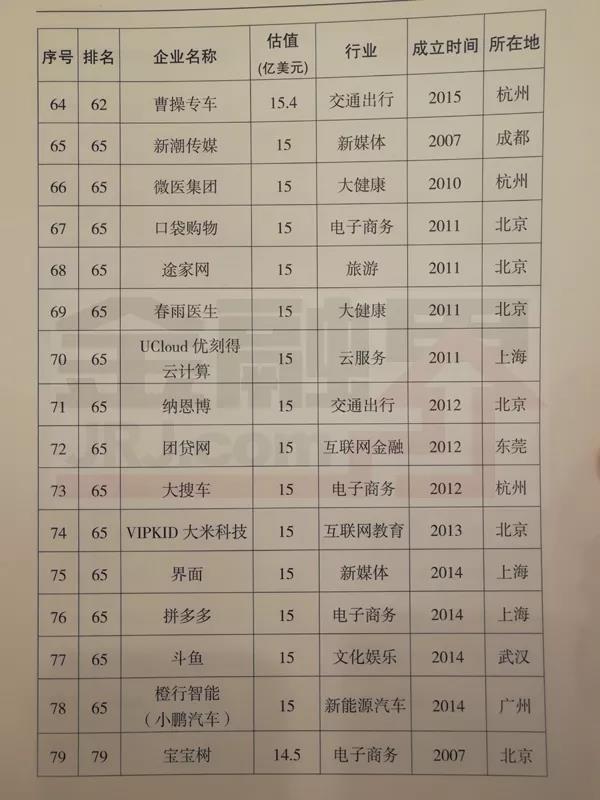 序号 排名 企业名称 估值 (亿美元) 行业 成立时间 所在地
64 62 曹操专车 15.4 交通出行 2015 杭州
65 65 新潮传媒 15 新媒体 2007 成都
66 65 微医集团 15 大健康 2010 杭州
67 65 口袋购物 15 电子商务 2011 北京
68 65 途家网 15 旅游 2011 北京
69 65 春雨医生 15 大健康 2011 北京
70 65 UCloud 优刻得云计算 15 云服务 2011 上海
71 65 纳恩博 15 交通出行 2012 北京
72 65 团贷网 15 互联网金融 2012 东莞
73 65 大搜车 15 电子商务 2012 杭州
74 65 VIPKID 大米科技 15 互联网教育 2013 北京
75 65 界面 15 新媒体 2014 上海
76 65 拼多多 15 电子商务 2014 上海
77 65 斗鱼 15 文化娱乐 2014 武汉
78 65 橙行智能（小鹏汽车） 15 新能源汽车 2014 广州
79 79 宝宝树 14.5 电子商务 2007 北京
金融界
JRJ.com